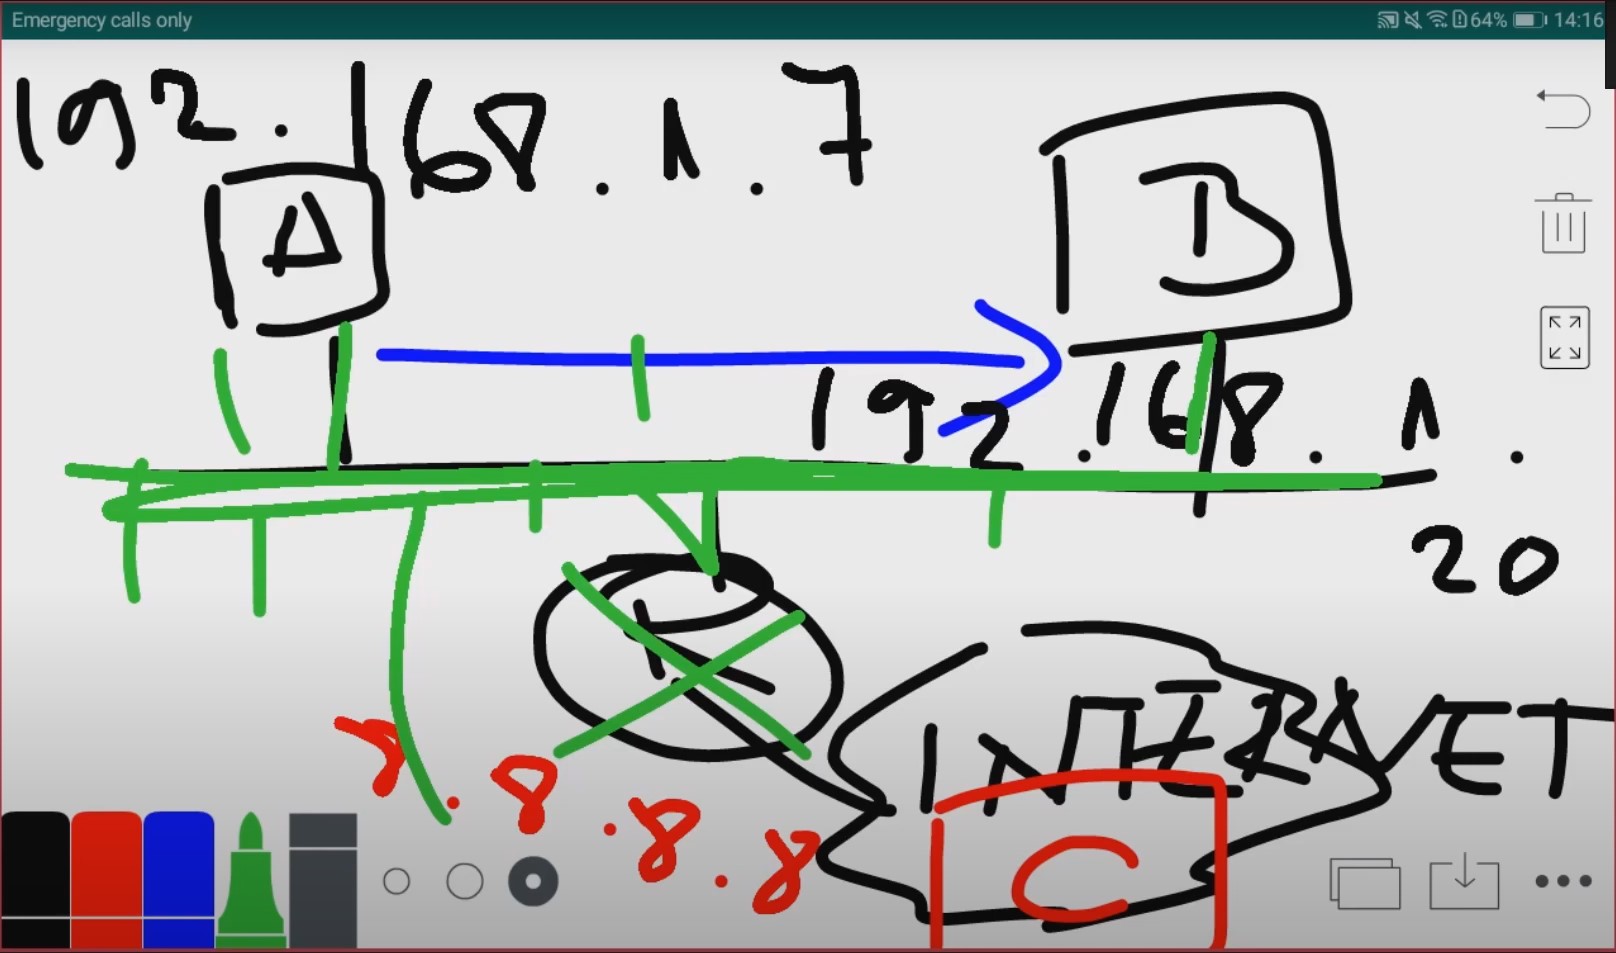 Emergency calls only
64% 14:16
192.168.1.7
A
B
192.168.1.
20
R
INTERNET
8.8.8.8
C